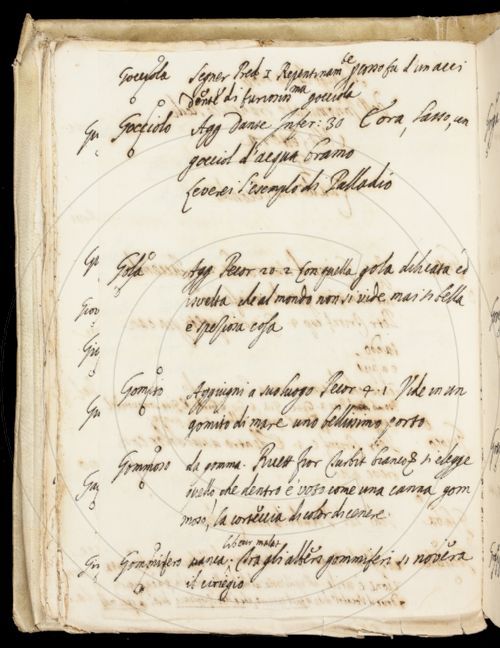 Gocciola Segner Pred: I Repentinam.te perso fu d'un acci
dente di furiosis.ma gocciola
Gocciolo Agg Dante Infer: 30 E ora, lasso, un
gocciol d'acqua bramo
Leverei l'esempio di Palladio
Gola Agg Pecor 20. 2 Con quella gola delicata ed
isvelta che al mondo non si vide mai si bella
e speziosa cosa
Gomito Aggiugni a suo luogo Pecor 4. 1 Vide in un
gomito di mare uno bellissimo porto
Gommoso da gomma. Ricett Fior Turbit bianco & si elegge
quello che dentro è voto come una canna gom
moso, la corteccia di color di cenere
Libr cur malat
Gommifero manca. Tra gli alberi gommiferi si novera
il ciriegio